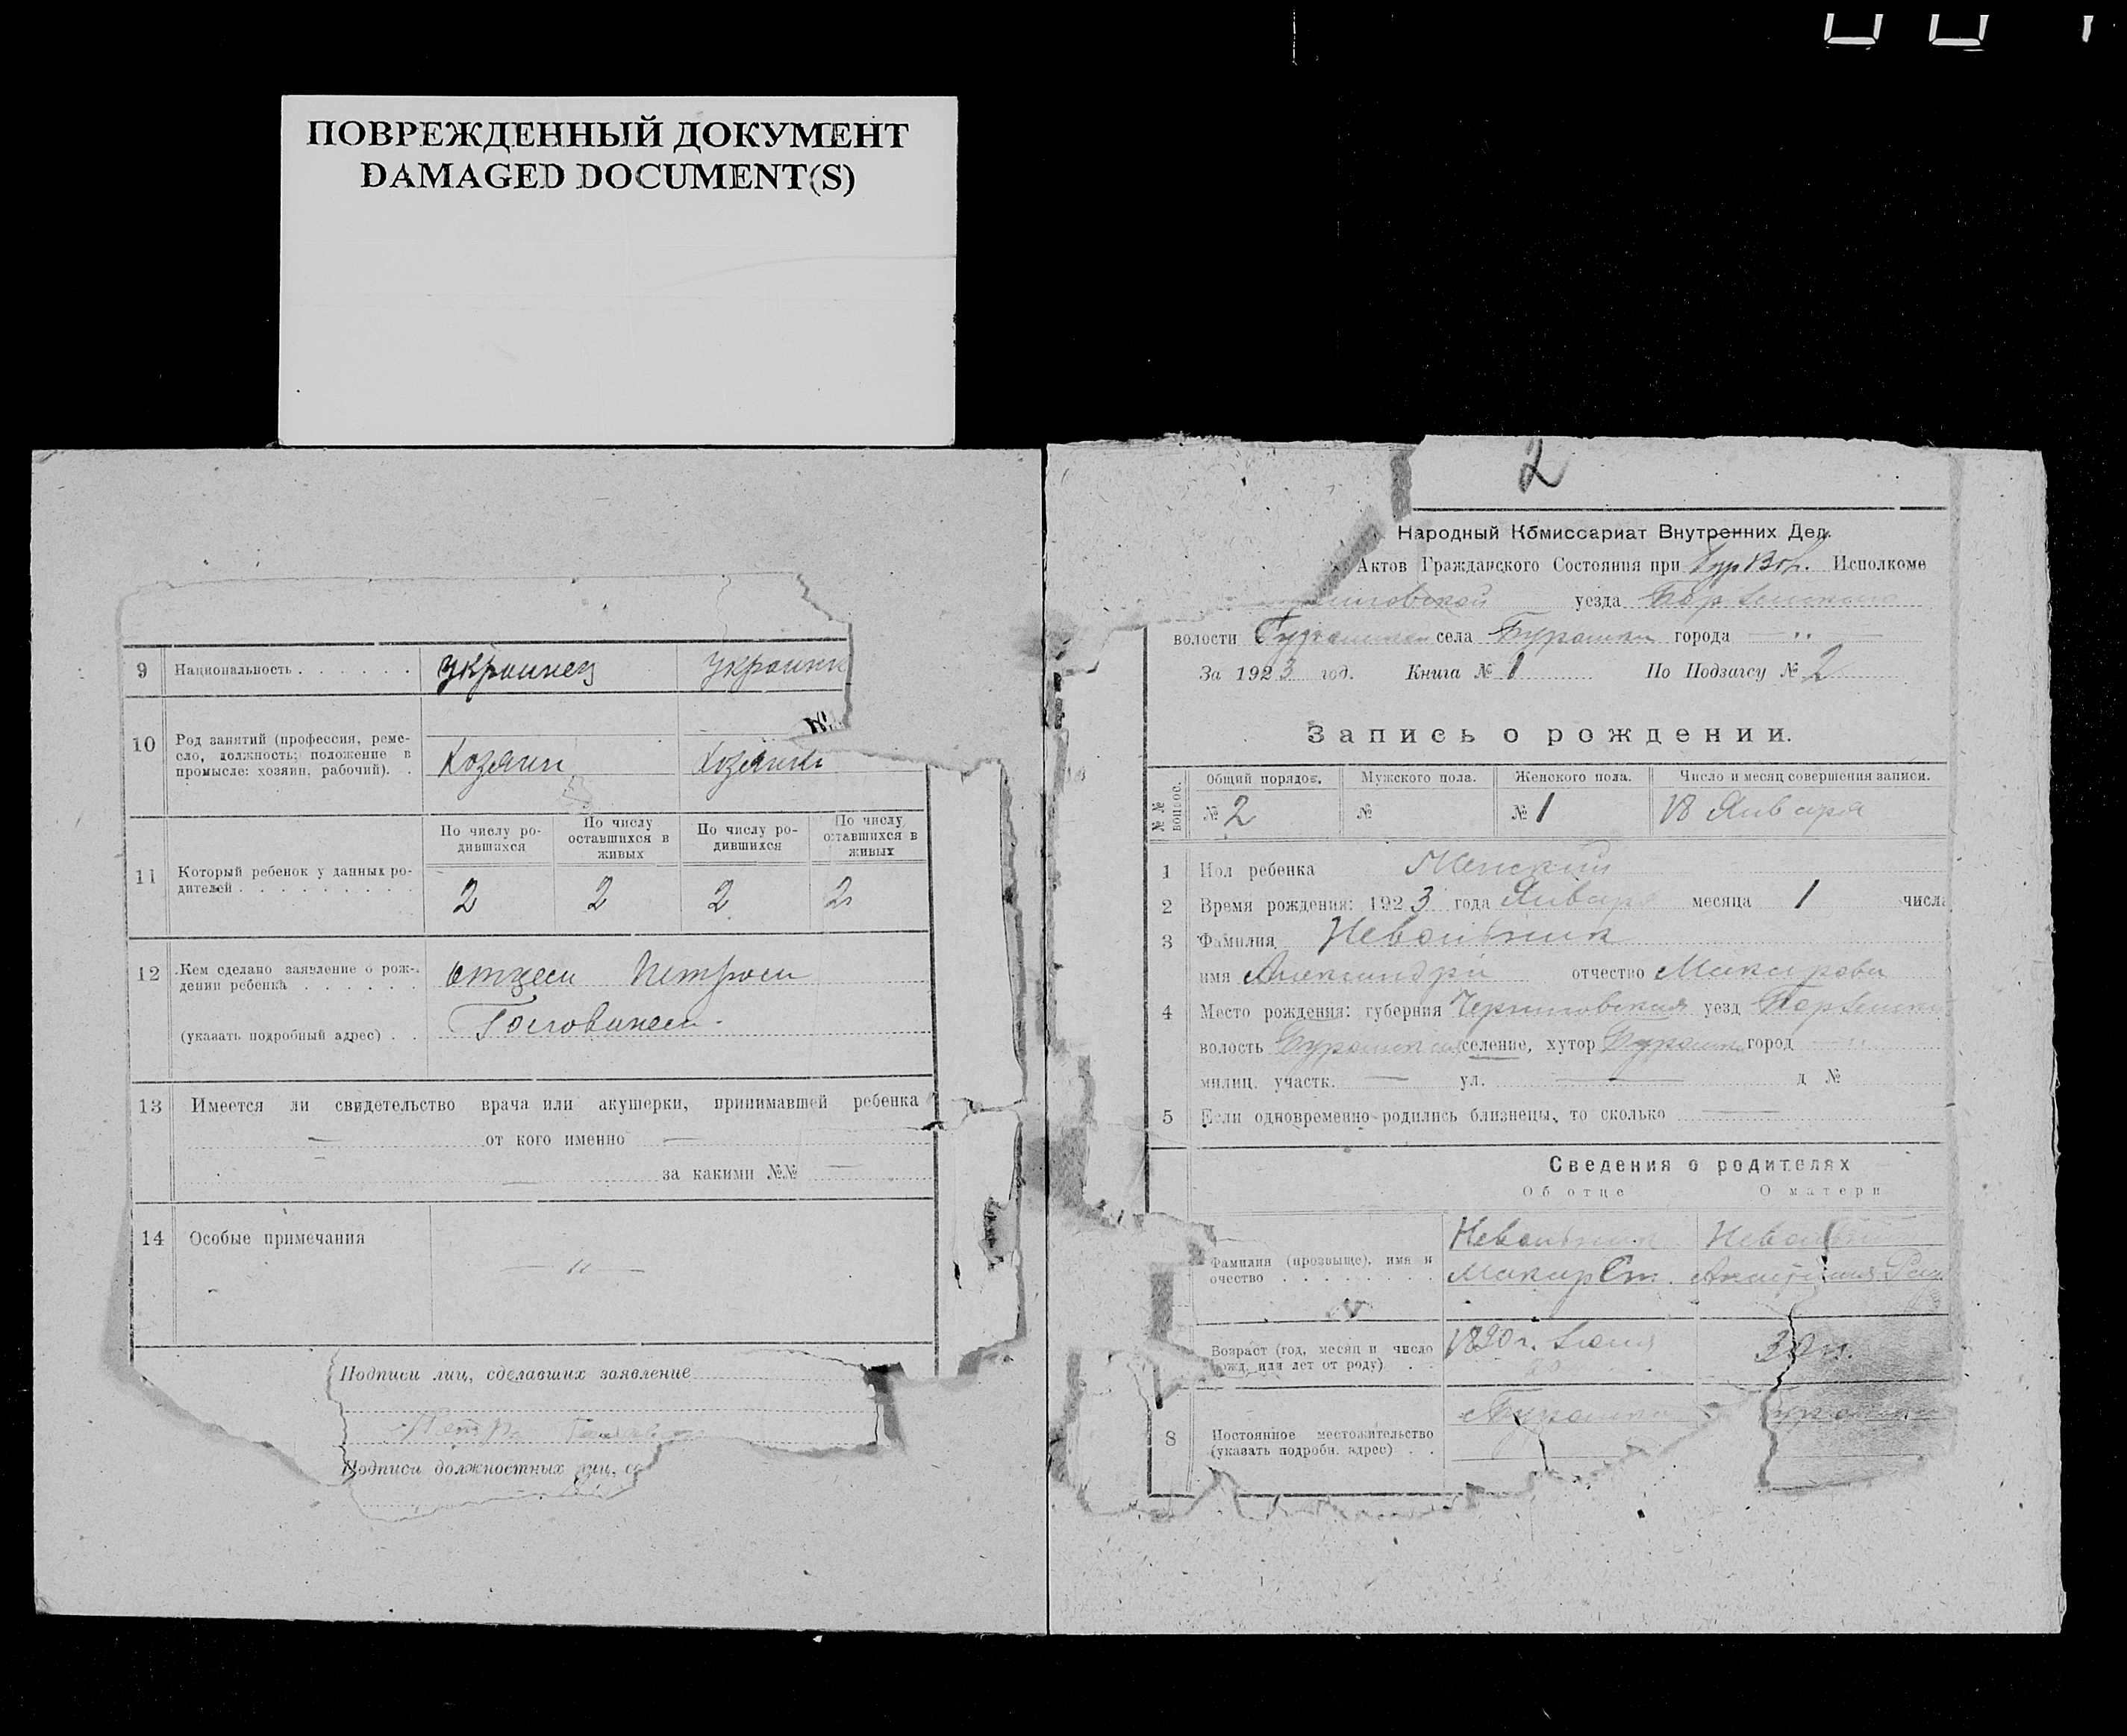 ПОВРЕЖДЕННЫЙ ДОКУМЕНТ
DAMAGED DOCUMENT(S)
9 Национальность . . . . . . украинец украинк
10 Род занятий (профессия, реме-
сло, должность; положение в
промысле: хозяин, рабочий). .
Хозяин Хозяйка
11 Который ребенок у данных ро-
дителей . . . . . . . . .
По числу ро-
дившихся
По числу
оставшихся в
живых
По числу ро-
дившихся
По числу
оставшихся в
живых
2 2 2 2
12 Кем сделано заявление о рож-
дении ребенка . . . . . .
отцем Петром
(указать подробный адрес) . .
Головинем
13 Имеется ли свидетельство врача или акушерки, принимавшей ребенка
— от кого именно —
— за какими №№ —
14 Особые примечания
— " —
Подписи лиц, сделавших заявление
Петр
Подписи должностных лиц, с
2
Народный Комиссариат Внутренних Дел.
Актов Гражданского Состояния при Исполкоме
ниговской уезда Борзенского
волости села Бурошки города — " —
За 1923 год. Книга № 1 По Подзагсу № 2
Запись о рождении.
№№ вопрос.
Общий порядок. Мужского пола. Женского пола. Число и месяц совершения записи.
№ 2 № № 1 18 Января
1 Пол ребенка Женский
2 Время рождения: 1923 года Января месяца 1 числа
3 Фамилия Невольник
имя Александра отчество Макарова
4 Место рождения: губерния Черниговская уезд Борзенский
волость селение, хутор город — " —
милиц. участк. — ул. — д №
5 Если одновременно родились близнецы, то сколько —
Сведения о родителях
Об отце О матери
Фамилия (прозвыще), имя и
очество . . . . . . . .
Невольник Неволь
Макар Ст.
Возраст (год, месяц и число
рожд. или лет от роду) . .
1890 г. 30 л.
8 Постоянное местожительство
(указать подробн. адрес) . .